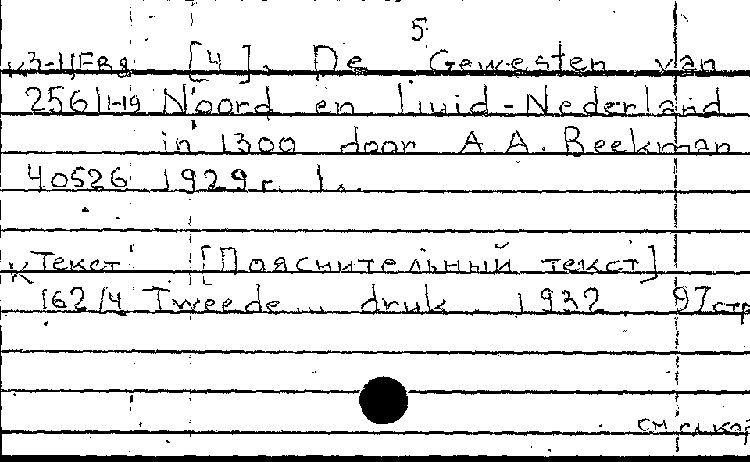 5
К3-Ц/Евд [4]. De Gewesten van
256/1-19 Noord en Zuid-Nederland
in 1300 door A A. Beekman
40526 1929г. 1..
К Текст [Пояснительный текст]
162/4 Tweede druk 1932. 97 стр
см сл. кар